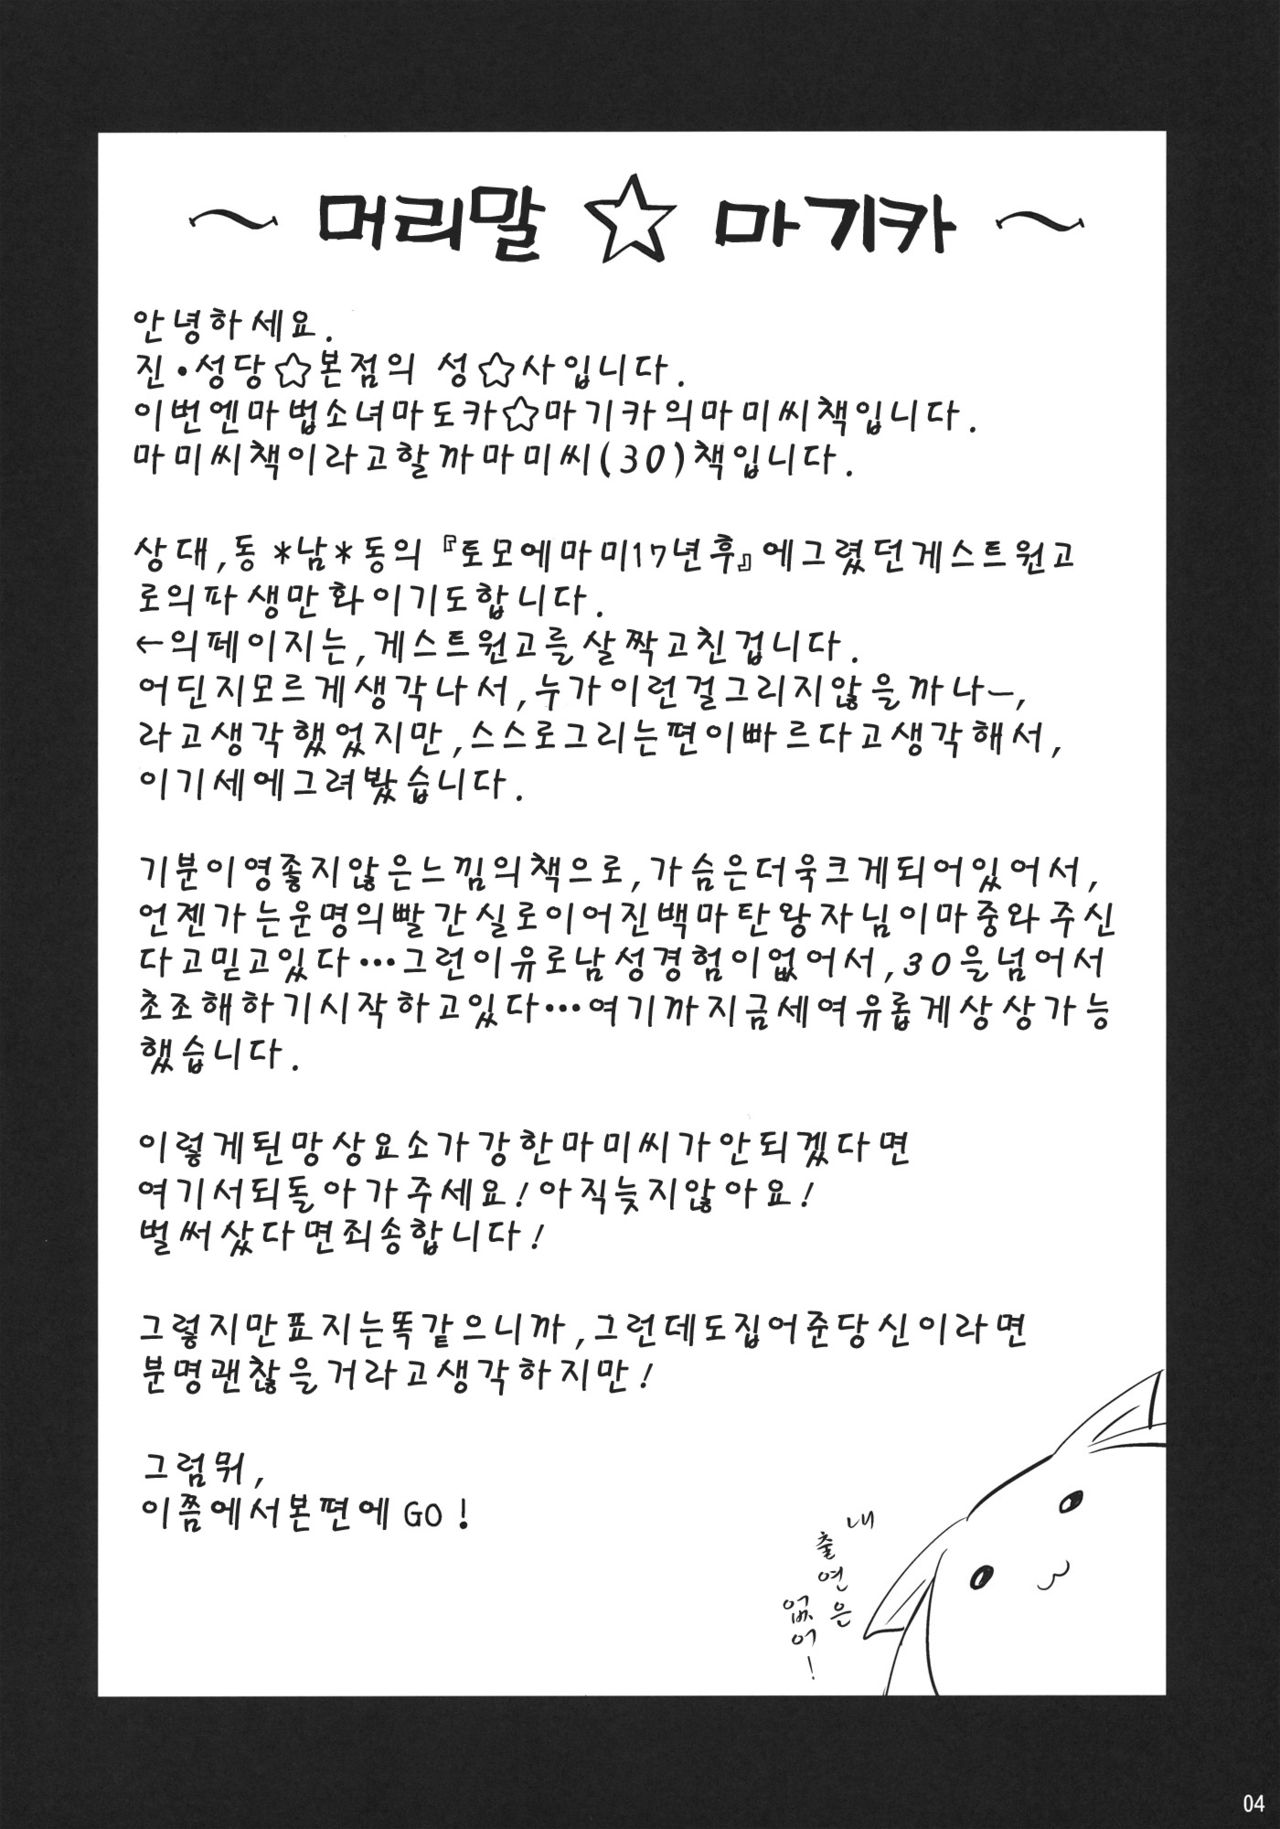 ～ 머리말 ☆ 마기카 ～
안녕하세요.
진・성당☆본점의 성☆사입니다.
이번엔마법소녀마도카☆마기카의마미씨책입니다.
마미씨책이라고할까마미씨(30)책입니다.
상대,동*남*동의『토모에마미17년후』에그렸던게스트원고
로의파생만화이기도합니다.
←의페이지는,게스트원고를살짝고친겁니다.
어딘지모르게생각나서,누가이런걸그리지않을까나ー,
라고생각했었지만,스스로그리는편이빠르다고생각해서,
이기세에그려봤습니다.
기분이영좋지않은느낌의책으로,가슴은더욱크게되어있어서,
언젠가는운명의빨간실로이어진백마탄왕자님이마중와주신
다고믿고있다…그런이유로남성경험이없어서,30을넘어서
초조해하기시작하고있다…여기까지금세여유롭게상상가능
했습니다.
이렇게된망상요소가강한마미씨가안되겠다면
여기서되돌아가주세요!아직늦지않아요!
벌써샀다면죄송합니다!
그렇지만표지는똑같으니까,그런데도집어준당신이라면
분명괜찮을거라고생각하지만!
그럼뭐,
이쯤에서본편에GO!
내
출연은
없어!
04